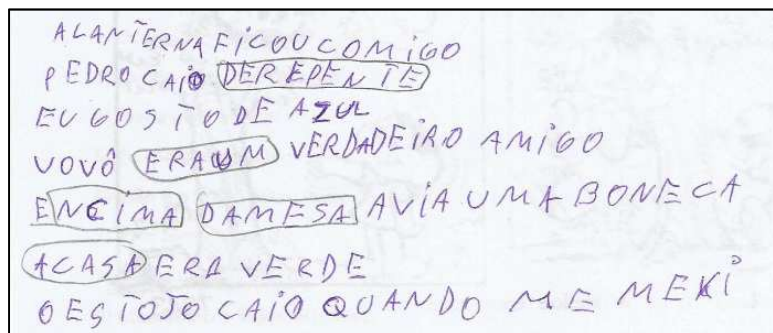 ALANTERNAFICOUCOMIGO
PEDRO CAIO DEREPENTE
EU GOSTO DE AZUL
VOVÔ ERAUM VERDADEIRO AMIGO
ENCIMA DAMESA AVIA UMA BONECA
ACASA ERA VERDE
OESTOJO CAIO QUANDO ME MEXI